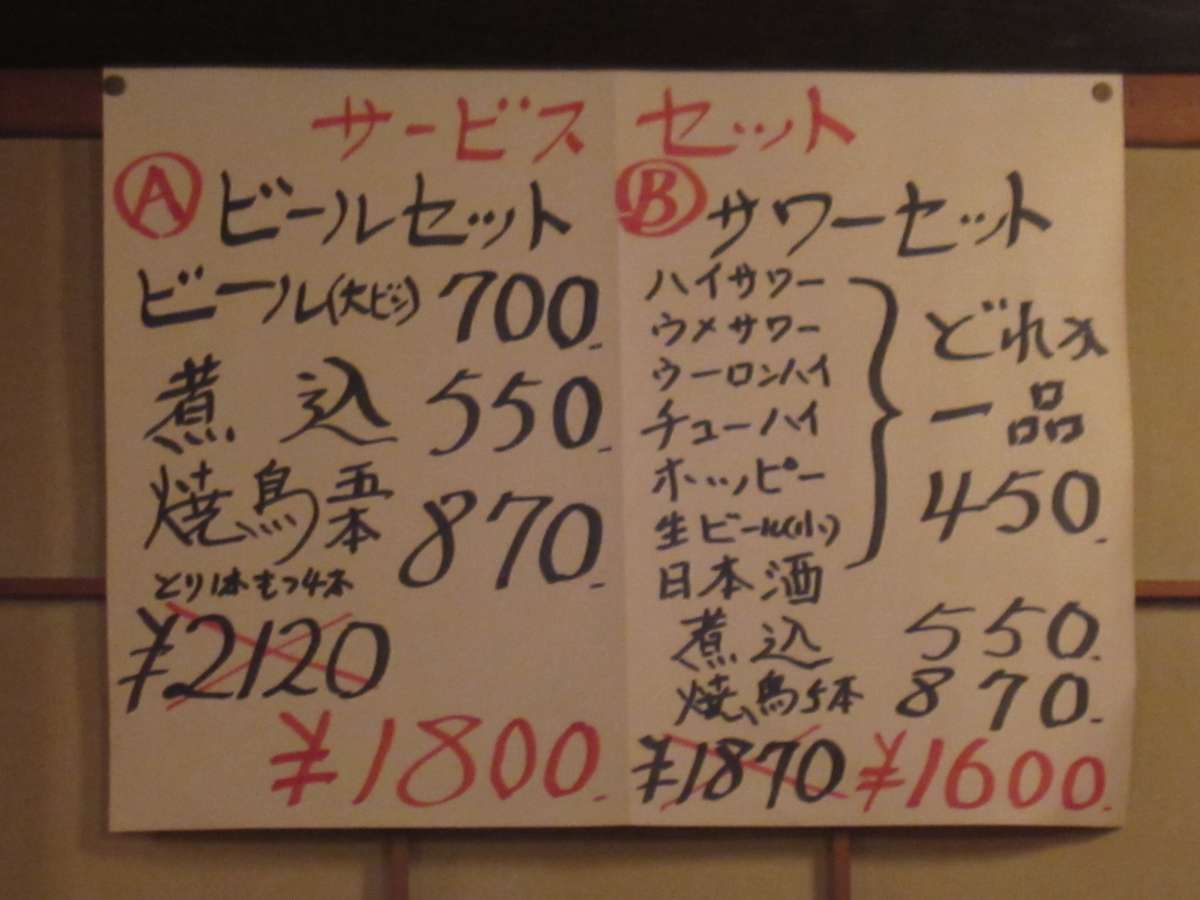 サービス セット
Ⓐ ビールセット
ビール(大ビン) 700.-
煮込 550.-
焼鳥五本 870.-
とり1本もつ4本
¥2120
¥1800.-
Ⓑ サワーセット
ハイサワー
ウメサワー
ウーロンハイ
チューハイ
ホッピー
生ビール(小)
日本酒
どれか
一品
450.-
煮込 550.
焼鳥5本 870.-
¥1870 ¥1600.-